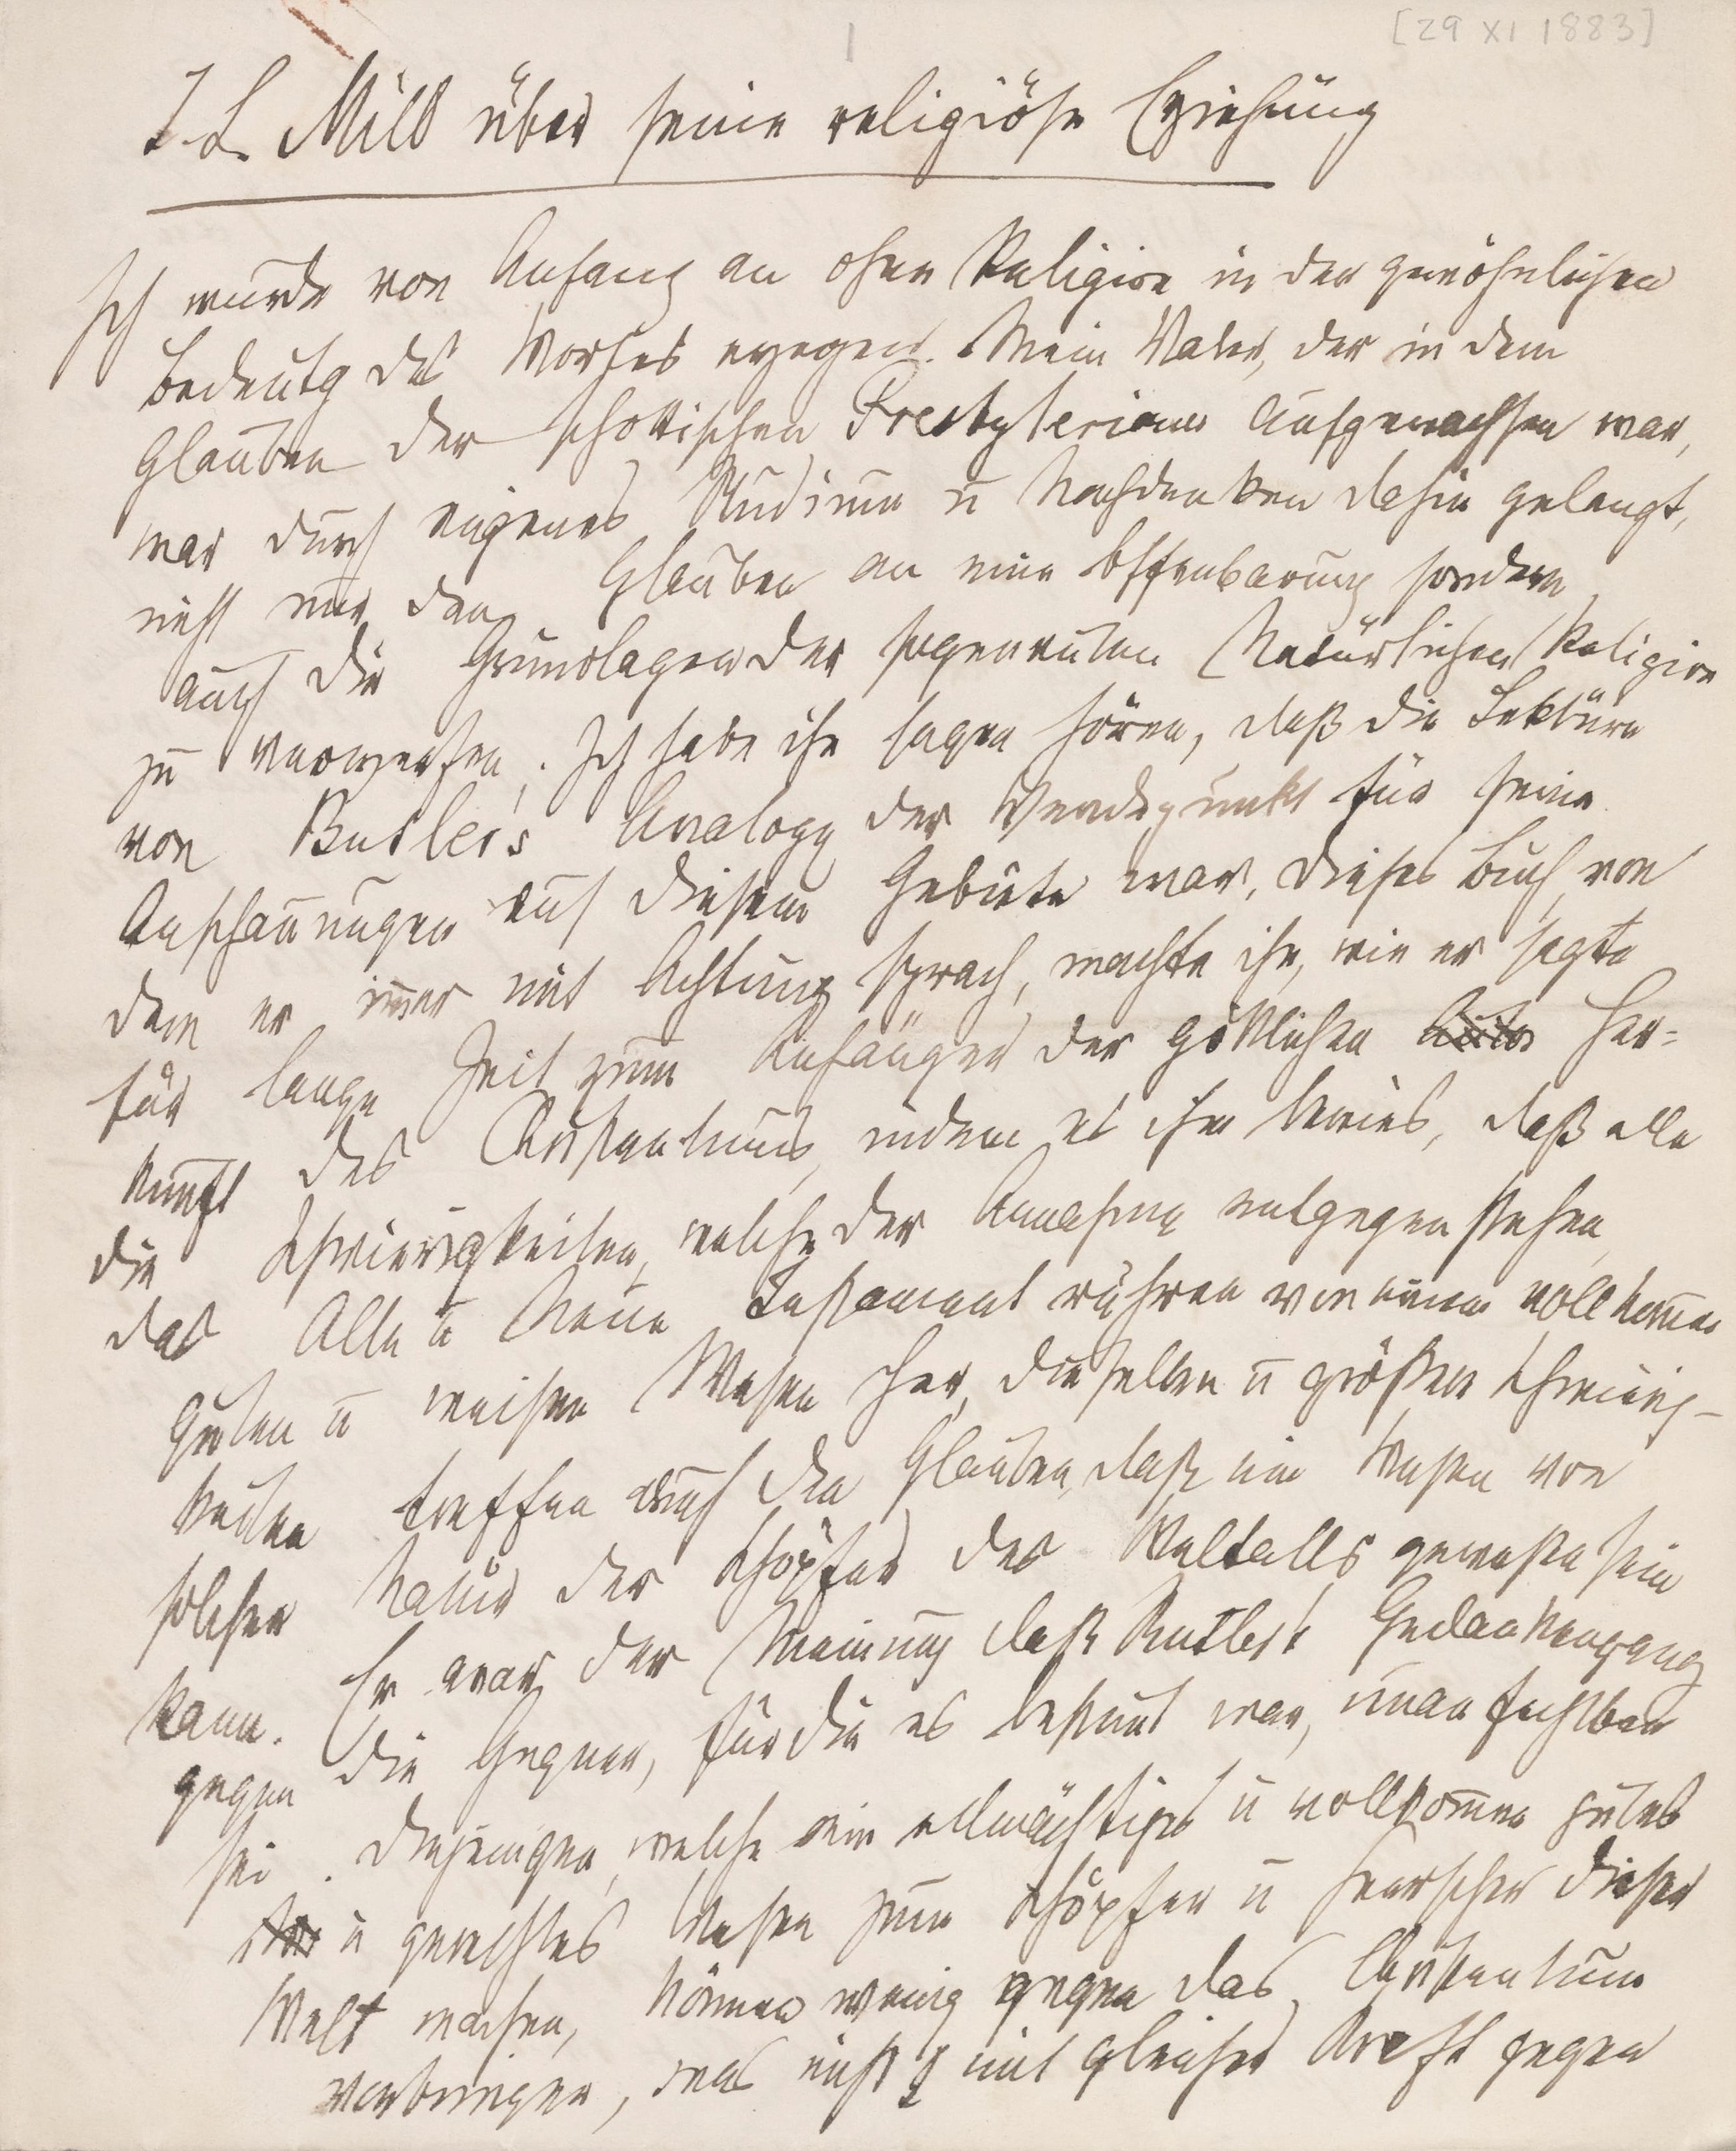 [29 XI 1883]
1
J. S. Mill über seine religiöse Erziehung
Ich wurde von Anfang an ohne Religion in der gewöhnlichen
Bedeutg des Wortes erzogen. Mein Vater, der in dem
Glauben der schottischen Presbyterianer aufgewachsen war,
war durch eigenes Studium u Nachdenken dahin gelangt,
nicht nur den Glauben an eine Offenbarung sondern
auch die Grundlagen der sogenannten Natürlichen Religion
zu verwerfen. Ich habe ihn sagen hören, daß die Lektüre
von Butler's Analogy der Wendepunkt für seine
Anschauungen auf diesem Gebiete war. Dieses Buch, von
dem er immer mit Achtung sprach, machte ihn, wie er sagte
für lange Zeit zum Anhänger der göttlichen Her=
kunft des Christentums, indem es ihm bewies, daß alle
die Schwierigkeiten, welche der Annahme entgegen stehen,
das Alte u Neue Testament rühren von einem vollkommen
guten u weisen Wesen her, dieselben u größere Schwierig-
keiten treffen auch den Glauben, daß ein Wesen von
solcher Natur der Schöpfer des Weltalls gewesen sein
kann. Er war der Meinung daß Butlers Gedankengang
gegen die Gegner, für die es bestimmt war, unanfechtbar
sei. Diejenigen, welche ein allmächtiges u vollkommen gutes
u gerechtes Wesen zum Schöpfer u Herrscher dieser
Welt machen, können wenig gegen das Christentum
vorbringen, was nicht mit gleicher Kraft gegen